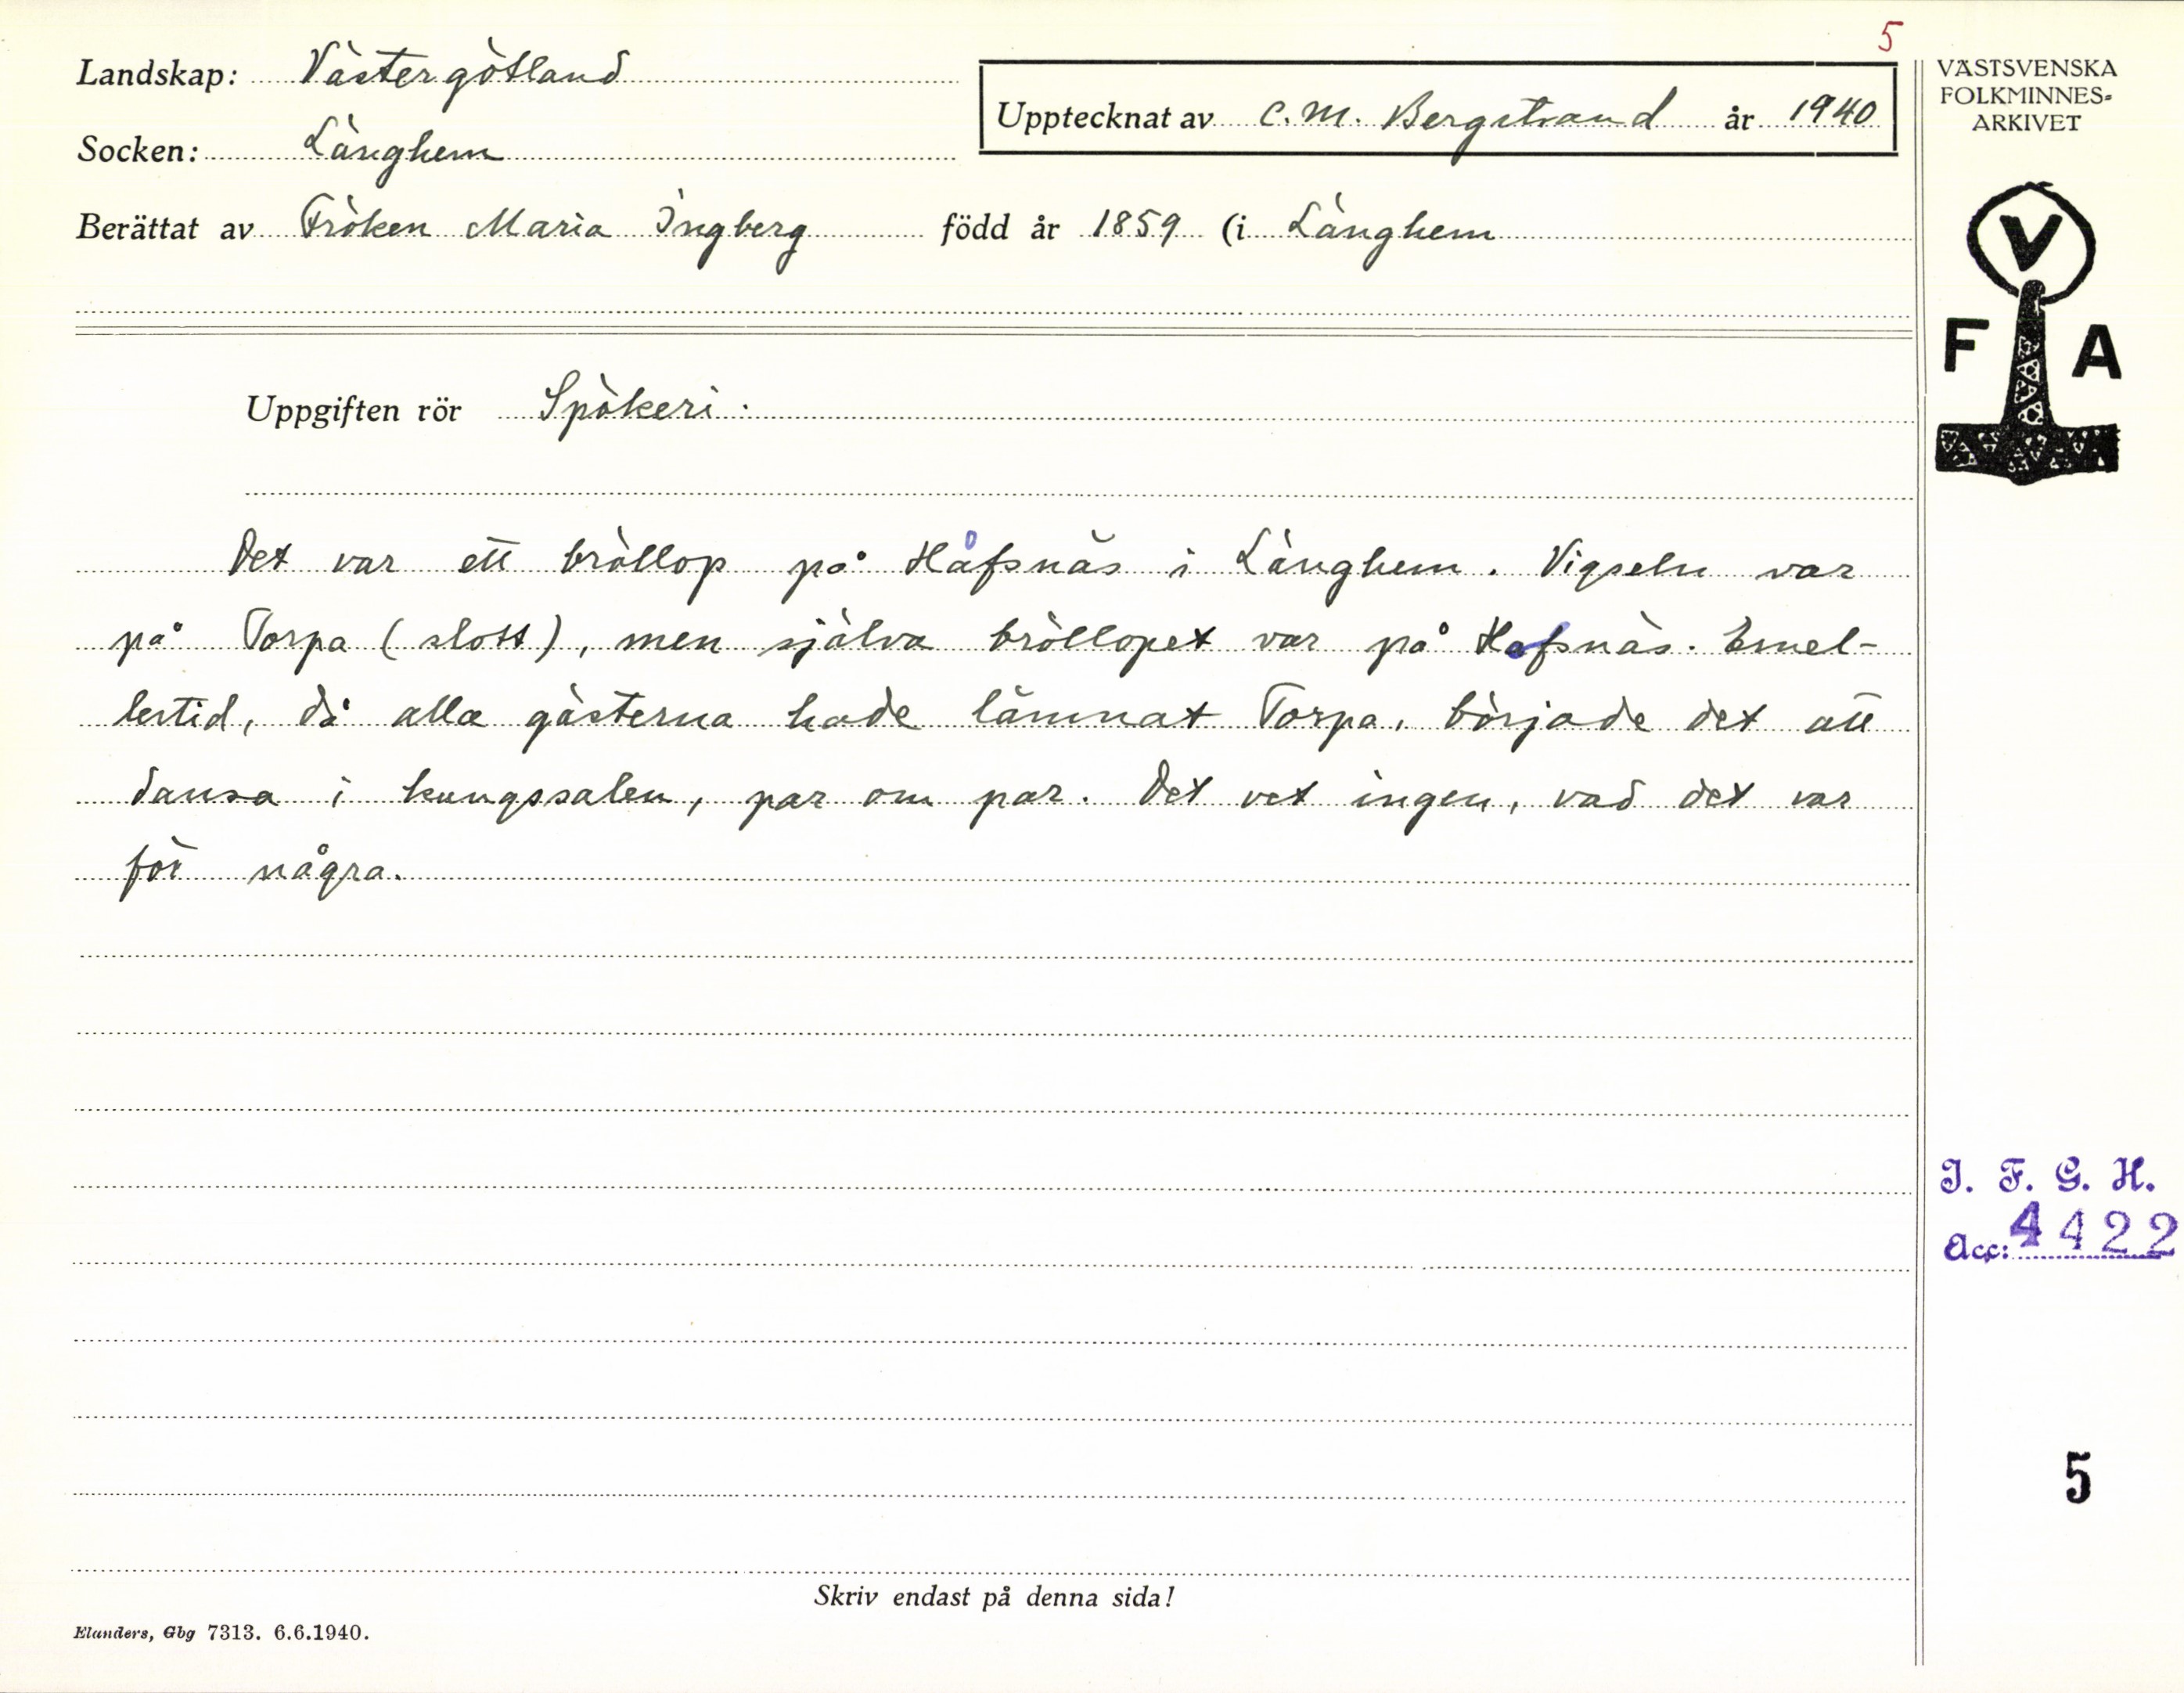 5
Landskap: Västergötland
Socken: Länghem
Upptecknat av C. M. Bergstrand år 1940
Berättat av Fröken Maria Ingberg född år 1859 (i Länghem
Uppgiften rör Spökeri.
Det var ett bröllop på Håfsnäs i Länghem. Vigseln var
på Torpa (slott), men själva bröllopet var på Hofsnäs. Emel-
lertid, då alla gästerna hade lämnat Torpa, började det att
dansa i kungssalen, par om par. Det vet ingen, vad det var
för några.
Skriv endast på denna sida!
Elanders, Gbg 7313. 6.6.1940.
VÄSTSVENSKA
FOLKMINNES-
ARKIVET
V
F A
I. F. G. H.
Acc: 4422
5